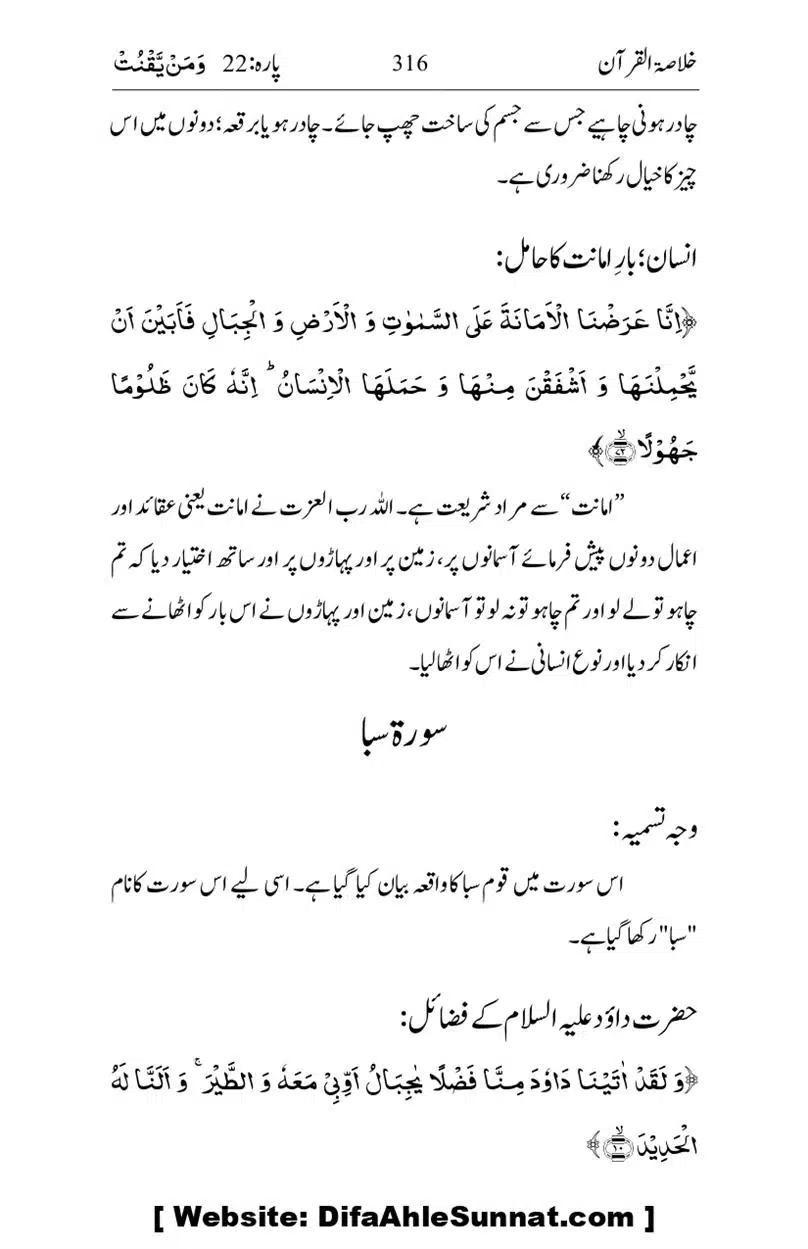 خلاصۃ القرآن 316 پارہ:22 وَمَنْ يَّقْنُتْ
چادر ہونی چاہیے جس سے جسم کی ساخت چھپ جائے۔ چادر ہو یا برقعہ؛ دونوں میں اس
چیز کا خیال رکھنا ضروری ہے۔
انسان؛ بارِ امانت کا حامل:
﴿اِنَّا عَرَضْنَا الْاَمَانَةَ عَلَى السَّمٰوٰتِ وَ الْاَرْضِ وَ الْجِبَالِ فَاَبَيْنَ اَنْ
يَّحْمِلْنَهَا وَ اَشْفَقْنَ مِنْهَا وَ حَمَلَهَا الْاِنْسَانُ ؕ اِنَّهٗ كَانَ ظَلُوْمًا
جَهُوْلًا ۙ﴿۷۲﴾﴾
”امانت“ سے مراد شریعت ہے۔ اللہ رب العزت نے امانت یعنی عقائد اور
اعمال دونوں پیش فرمائے آسمانوں پر، زمین پر اور پہاڑوں پر اور ساتھ اختیار دیا کہ تم
چاہو تو لے لو اور تم چاہو تو نہ لو تو آسمانوں، زمین اور پہاڑوں نے اس بار کو اٹھانے سے
انکار کر دیا اور نوع انسانی نے اس کو اٹھا لیا۔
سورۃ سبا
وجہ تسمیہ:
اس سورت میں قوم سبا کا واقعہ بیان کیا گیا ہے۔ اسی لیے اس سورت کا نام
"سبا" رکھا گیا ہے۔
حضرت داؤد علیہ السلام کے فضائل:
﴿وَ لَقَدْ اٰتَيْنَا دَاوٗدَ مِنَّا فَضْلًا يٰجِبَالُ اَوِّبِيْ مَعَهٗ وَ الطَّيْرَ ۚ وَ اَلَنَّا لَهُ
الْحَدِيْدَ ۙ﴿۱۰﴾﴾
[ Website: DifaAhleSunnat.com ]